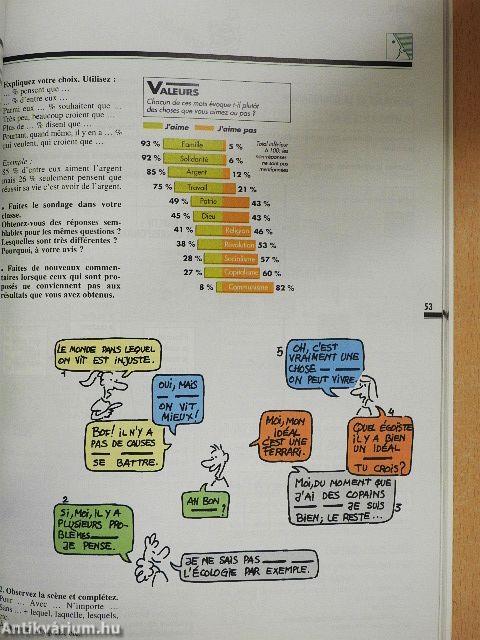 Expliquez votre choix. Utilisez :
… % pensent que …
… % d'entre eux …
Parmi eux … % souhaitent que …
Très peu, beaucoup croient que …
Plus de … % disent que …
Pourtant, quand même, il y en a … %
qui veulent, qui croient que …
Exemple :
85 % d'entre eux aiment l'argent
mais 26 % seulement pensent que
réussir sa vie c'est avoir de l'argent.
. Faites le sondage dans votre
classe.
Obtenez-vous des réponses sem-
blables pour les mêmes questions ?
Lesquelles sont très différentes ?
Pourquoi, à votre avis ?
. Faites de nouveaux commen-
taires lorsque ceux qui sont pro-
posés ne conviennent pas aux
résultats que vous avez obtenus.
VALEURS
Chacun de ces mots évoque t-il plutôt
des choses que vous aimez ou pas ?
J'aime J'aime pas
93 % Famille 5 %
92 % Solidarité 6 %
85 % Argent 12 %
75 % Travail 21 %
49 % Patrie 43 %
45 % Dieu 43 %
41 % Religion 46 %
38 % Révolution 53 %
28 % Socialisme 57 %
27 % Capitalisme 60 %
8 % Communisme 82 %
Total inférieur
à 100 : les
non-réponses
ne sont pas
mentionnées
53
LE MONDE DANS LEQUEL
ON VIT EST INJUSTE.
1
OUI, MAIS
ON VIT
MIEUX!
BOF! IL N'Y A
PAS DE CAUSES
SE BATTRE.
AH BON
?
2
SI, MOI, IL Y A
PLUSIEURS PRO-
BLÈMES
JE PENSE.
JE NE SAIS PAS
L'ÉCOLOGIE PAR EXEMPLE.
5
OH, C'EST
VRAIMENT UNE
CHOSE
ON PEUT VIVRE.
MOI, MON
IDÉAL
C'EST UNE
FERRARI.
4
QUEL ÉGOÏSTE
IL Y A BIEN
UN IDÉAL
TU CROIS?
MOI, DU MOMENT QUE
J'AI DES COPAINS
JE SUIS
BIEN; LE RESTE...
3
2. Observez la scène et complétez.
Pour … Avec … N'importe …
Sans … + lequel, laquelle, lesquels,
Antikvárium.hu